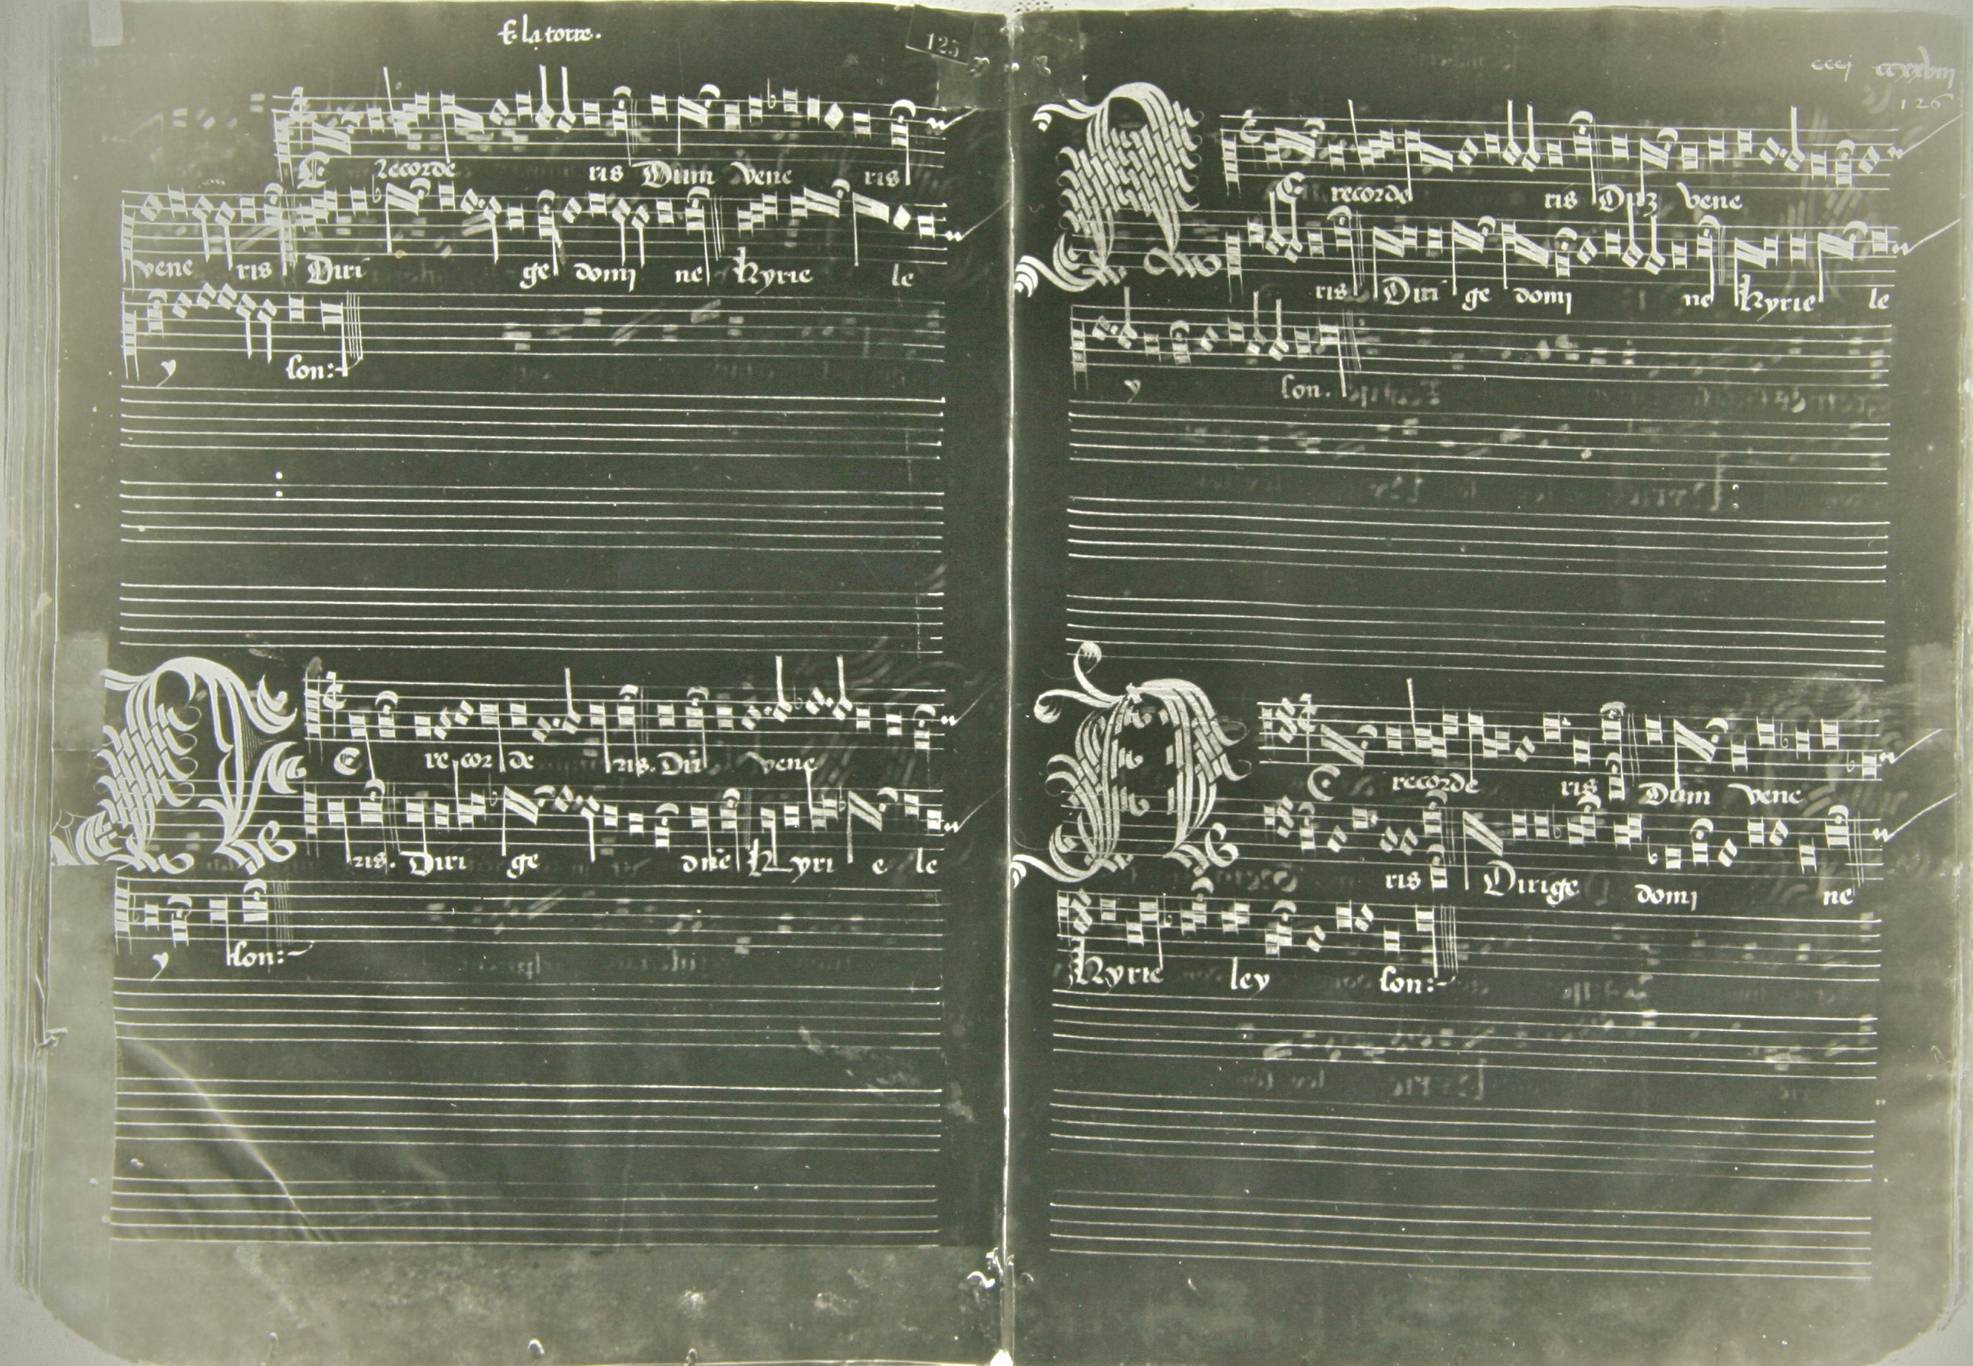 f. la torre.
125
E recorde ris Dum vene ris
vene ris Diri ge domi ne Kyrie le
y son:
N E recor de ris. Dū vene
ris. Diri ge dn̄e Kyri e le
y son:
126
N E recorde ris Dūz vene
ris Diri ge domi ne Kyrie le
y son.
N E recorde ris Dum vene
ris Dirige domi ne
Kyrie ley son: